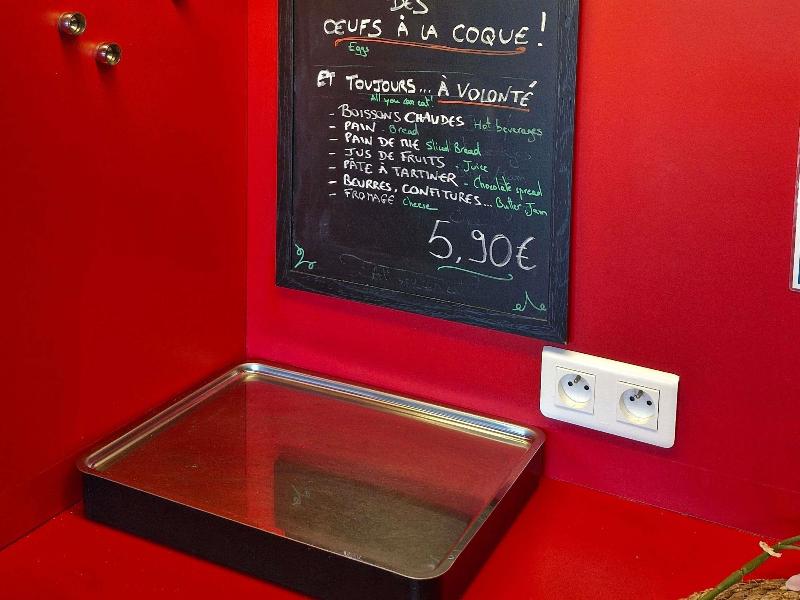 DES
ŒUFS À LA COQUE !
Eggs
ET TOUJOURS... À VOLONTÉ
All you can eat!
- BOISSONS CHAUDES Hot beverages
- PAIN - Bread
- PAIN DE MIE Sliced Bread
- JUS DE FRUITS - Juice
- PÂTE À TARTINER - Chocolate spread
- BEURRES, CONFITURES... Butter Jam
- FROMAGE Cheese
5,90€